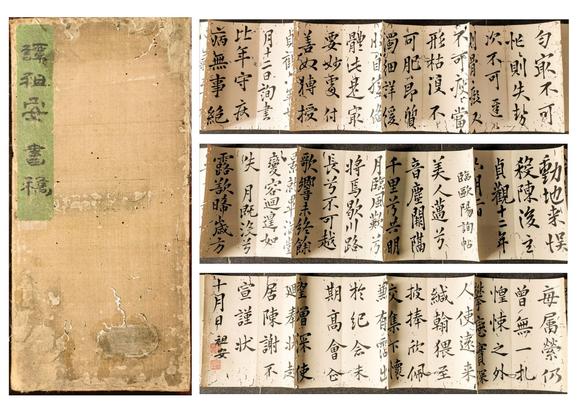 譚祖安書稿
勻最不可
忙則失勢
次不可
不可瘦當
形枯復不
可肥即質
濁細詳緩
體法是最
要妙處付
善奴轉授
月十二日詢書
比年守疾
病無事絕
動地來悮
殺陳後主
貞觀十二年
月二日
臨歐陽詢帖
美人邁兮
音塵闕隔
千里兮共明
月臨風歎兮
將焉歇川路
長兮不可越
歌響未終餘
變容迴遑如
失月既沒兮
露欲晞歲方
每屬縈仍
曾無一札
惶悚之外
人使遠來
緘翰猥至
披捧欣佩
交集下懷
於紀念未
期高會
增深使
迴奉狀
居陳謝不
宣謹狀
十月日祖安